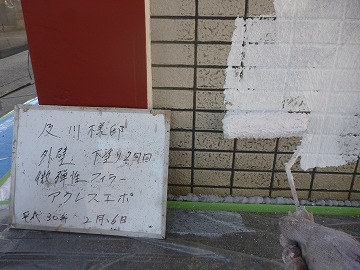 及川様邸
外壁 下塗り2回目
微弾性フィラー
アクレスエポ
平成30年 2月16日